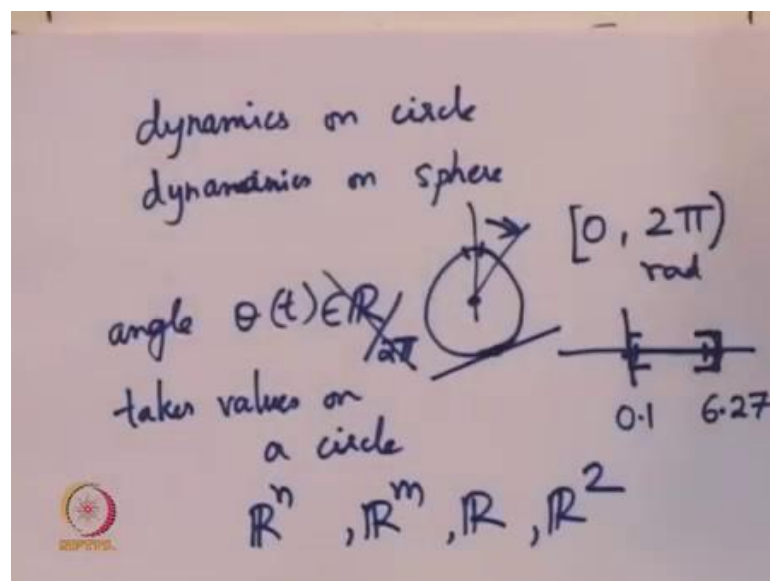 dynamics on circle
dynamanics on sphere
[0, 2π)
rad
angle θ(t) ∈ ℝ/2π
takes values on
a circle
0.1 6.27
ℝⁿ, ℝᵐ, ℝ, ℝ²
NPTEL